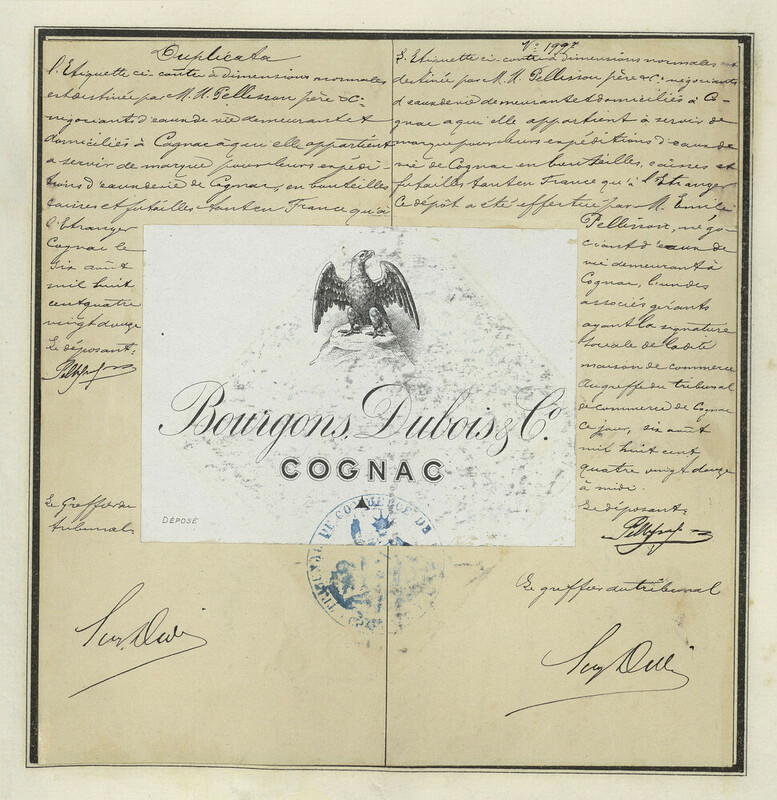 Duplicata
l'Etiquette ci-contre à dimensions normales
est destinée par M. M. Pellisson père & Cº
négociants d'eaux de vie demeurant et
domiciliés à Cognac à qui elle appartient
a servir de marque pour leurs expédi-
tions d'eaux de vie de Cognac, en bouteilles
caisses et futailles tant en France qu'à
l'Etranger
Cognac le
six août
mil huit
cent quatre
vingt douze
Le déposant:
Le Greffier du
tribunal
Nº 1992
l'Etiquette ci-contre à dimensions normales est
destinée par M. M. Pellisson père & Cº négociants
d'eaux de vie demeurant et domiciliés à Co-
gnac a qui elle appartient à servir de
marque pour leurs expéditions d'eaux de
vie de Cognac en bouteilles, caisses et
futailles tant en France qu'à l'Etranger
Ce dépôt a été effectué par M. Emile
Pellisson, négo-
ciant d'eaux de
vie demeurant à
Cognac, l'un des
associés gérants
ayant la signature
sociale de ladite
maison de commerce
Au greffe du tribunal
de commerce de Cognac
ce jour, six août
mil huit cent
quatre vingt douze
à midi.
Le déposant:
Le greffier du tribunal
Bourgons, Dubois & Cº.
COGNAC
DÉPOSÉ
TRIBUNAL DE COMMERCE DE